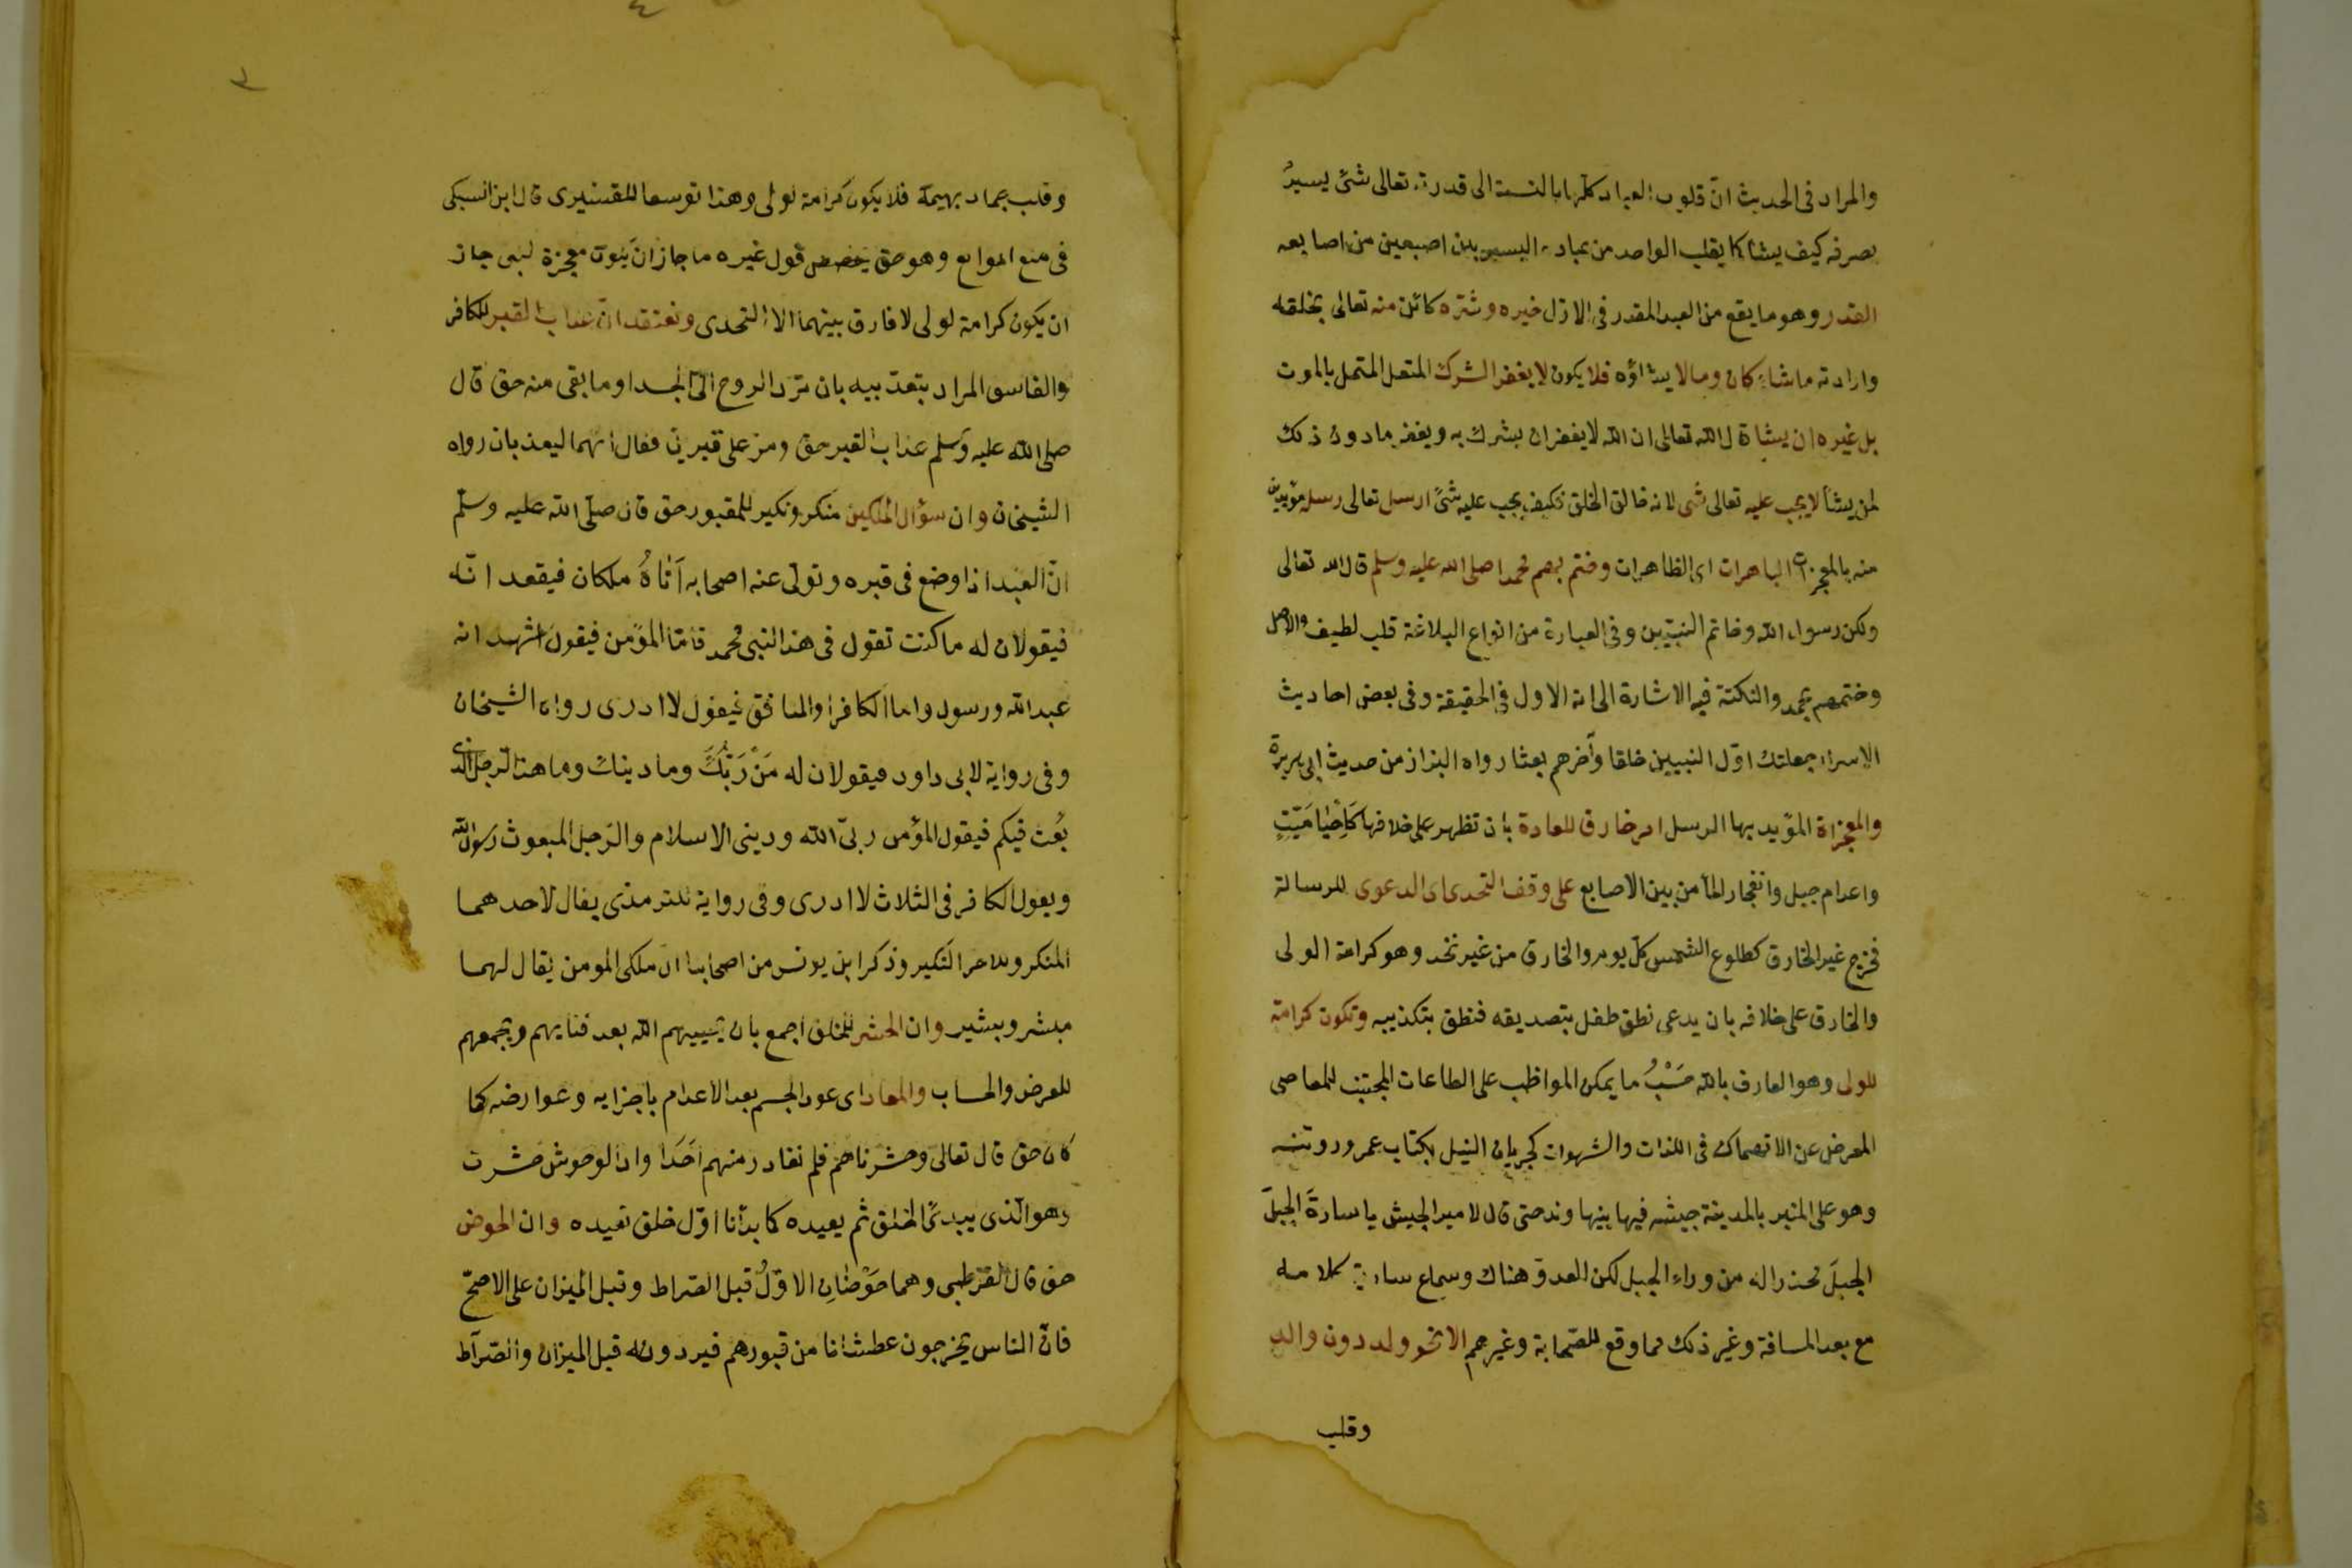 والمراد في الحديث انّ قلوب العباد كلها بالنسبة الى قدرته تعالى شئ يسيرٌ
يصرفه كيف يشا كا يقلب الواحد من عباده اليسير بين اصبعين من اصابعه
القدر وهو ما يقع من العبد المقدر فى الازل خيره وشرّه كائن منه تعالى بخلقه
وارادته ما شاء كان وما لا يشاؤه فلا يكون لا يغفر الشرك المتصل بالموت
بل غيره ان يشا قال الله تعالى ان الله لا يغفر ان يشرك به ويغفر ما دون ذلك
لمن يشأ لا يجب عليه تعالى شى لانه خالق الخلق فكيف يجب عليه شئ ارسل تعالى رسله مؤيدين
منه بالمعجزات الباهرات اى الظاهرات وختم بهم محمدا صلى الله عليه وسلم قال الله تعالى
ولكن رسول الله وخاتم النبيّين وفى العبارة من انواع البلاغة قلب لطيف والاصل
وختمهم بمحمد والنكتة فيه الاشارة الى انه الاول فى الحقيقة وفى بعض احاديث
الاسراء جعلتك اوّل النبيين خلقا وآخرهم بعثا رواه البزاز من حديث ابى هريرة
والمعجزاة المؤيد بها الرسل امر خارق للعادة بان تظهر على خلافها كَاِحْيا مَيّتٍ
واعدام جبل وانفجار الماْ من بين الاصابع على وقف التحدى اى الدعوى للرسالة
فخرج غير الخارق كطلوع الشمس كلّ يوم والخارق من غير تحد وهو كرامة الولى
والخارق على خلافه بان يدعى نطق طفل بتصديقه فنطق بتكذيبه وتكون كرامة
للولى وهو العارف بالله حَسْبُ ما يمكن المواظب على الطاعات المجتنب للمعاصى
المعرض عن الانهماك فى اللذات والشهوات كجريان النيل بكتاب عمر ورويته
وهو على المنبر بالمدينة جيشه بنهاوند حتى قال لامير الجيش يا سارةَ الجبلَ
الجبلَ محذرا له من وراء الجبل لكن العدوّ هناك وسماع سارية كلامه
مع بعد المسافة وغير ذلك مما وقع للصّحابة وغيرهم الا نحو ولد دون والد
وقلب
وقلب جماد بهيمة فلا يكون كرامة لولى وهذا توسعا للقشيرى قال ابن السبكى
فى منع الموانع وهو حق يخصص قول غيره ما جاز ان يكون معجزة لنبى جاز
ان يكون كرامة لولى لا فارق بينهما الا التحدى ونعتقد انّ عذاب القبر للكافر
والفاسق المراد بتعذيبه بان ترد الروح الى الجسد او ما بقى منه حق قال
صلى الله عليه وسلم عذاب القبر حق ومر على قبرين فقال انهما ليعذبان رواه
الشيخان وان سؤال الملكين منكر ونكير للمقبور حق قال صلّى الله عليه وسلّم
انّ العبد اذا وضع فى قبره وتولى عنه اصحابه اَتاهُ ملكان فيقعدانّه
فيقولان له ما كنت تقول فى هذا النبى محمد فامّا المؤمن فيقول اشهد انه
عبد الله ورسوله واما الكافر او المنافق فيقول لا ادرى رواه الشيخان
وفى رواية لابى داود فيقولان له مَنْ رَبّكَ وما دينك وما هذا الرّجل الذى
بُعث فيكم فيقول المؤمن ربىّ الله ودينى الاسلام والرّجل المبعوث رسول الله
ويقول الكافر فى الثلاث لا ادرى وفى رواية للترمذى يقال لاحدهما
المنكر وللاخر النكير وذكر ابن يونس من اصحابنا ان ملكى المومن يقال لهما
مبشر وبشير وان الحشر للخلق اجمع بان يحييهم الله بعد فنايهم ويجمعهم
للعرض والحساب والمعاد اى عود الجسم بعد الاعدام باجزايه وعوارضه كما
كان حق قال تعالى وحشرناهم فلم نغادر منهم اَحَدا واذا الوحوش حشرت
وهو الّذى يبدئ الخلق ثم يعيده كا بدأنا اوّل خلق نعيده وان الحوض
حق قال القرطبى وهما حَوْضَانِ الاوّلُ قبل الصّراط وقبل الميزان على الاصحّ
فانّ الناس يخرجون عطشانا من قبورهم فيردونه قبل الميزان والصّراط